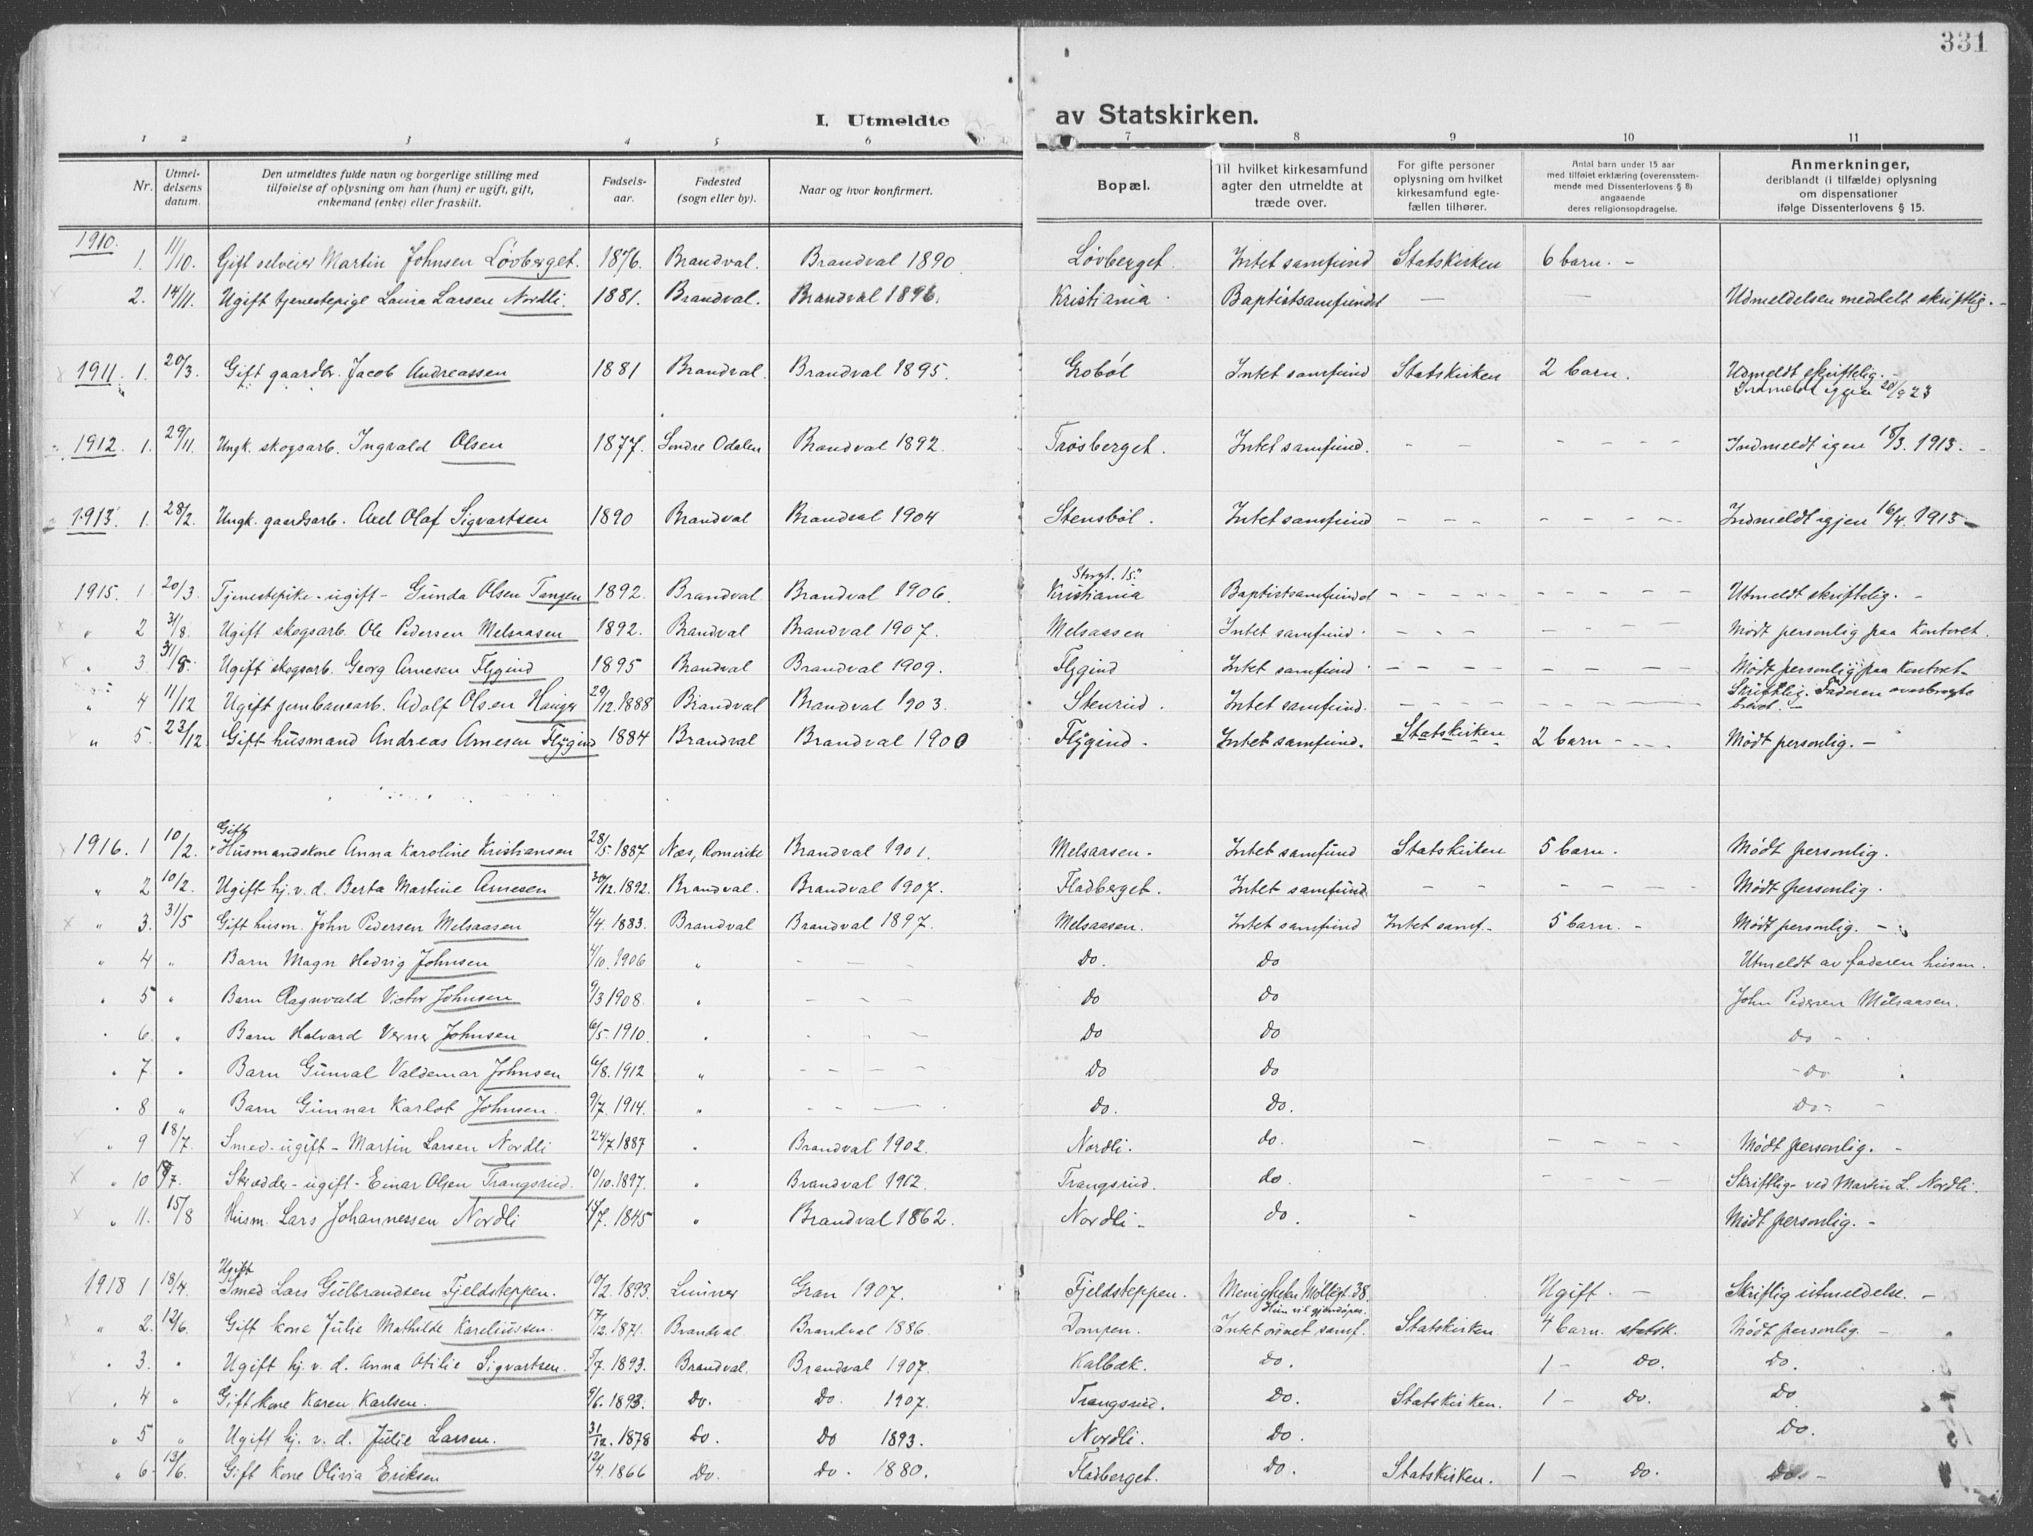 331
I. Utmeldte av Statskirken.
1 2 3 4 5 6 7 8 9 10 11
Nr. Utmeldelsens datum. Den utmeldtes fulde navn og borgerlige stilling med tilføielse af oplysning om han (hun) er ugift, gift, enkemand (enke) eller fraskilt. Fødselsaar. Fødested (sogn eller by). Naar og hvor konfirmert. Bopæl. Til hvilket kirkesamfund agter den utmeldte at træde over. For gifte personer oplysning om hvilket kirkesamfund egtefællen tilhører. Antal barn under 15 aar med tilføiet erklæring (overensstemmende med Dissenterlovens § 8) angaaende deres religionsopdragelse. Anmerkninger, deriblandt (i tilfælde) oplysning om dispensationer ifølge Dissenterlovens § 15.
1910. 1. 11/10. Gift selveier Martin Johnsen Løvberget. 1876. Brandval. Brandval 1890 Løvberget. Intet samfund Statskirken 6 barn. -
2. 14/11. Ugift tjenestepige Laura Larsen Nordli. 1881. Brandval. Brandval 1896. Kristiania. Baptistsamfundet — — Udmeldelsen meddelt skriftlig. -
1911. 1. 20/3. Gift gaardbr. Jacob Andreassen 1881 Brandval. Brandval 1895. Grobøl Intet samfund Statskirken 2 barn. Udmeldt skriftelig. - Indmeldt igjen 20/9 23
1912. 1. 29/11. Ungk. skogsarb. Ingvald Olsen 1877. Søndre Odalen Brandval 1892. Trøsberget. Intet samfund. - - - - - - Indmeldt igen 18/3. 1913. -
1913. 1. 28/2. Ungk. gaardsarb. Axel Olaf Sigvartsen 1890 Brandval Brandval 1904 Stensbøl. Intet samfund - - - - - - - Indmeldt igjen 16/4. 1915 -
1915. 1 20/3 Tjenestepike - ugift - Gunda Olsen Tangen 1892. Brandval Brandval 1906. Storgt. 15. Kristiania Baptistsamfundet - - - - - - - Utmeldt skriftelig. -
" 2 31/8. Ugift skogsarb. Ole Pedersen Melsaasen 1892. Brandval Brandval 1907. Melsaasen Intet samfund. - - - - - - Mødt personlig paa Kontoret.
" 3 31/8. Ugift skogsarb. Georg Arnesen Flygind 1895 Brandval Brandval 1909. Flygind Intet samfund. - - - - - - Mødt personlig paa Kontoret -
" 4 11/12 Ugift jernbanearb. Adolf Olsen Hauger 29/12. 1888 Brandval Brandval 1903. Stenrud. Intet samfund. - - - - - - Skriftlig. Faderen overbragte brevet. -
" 5. 23/12. Gift husmand Andreas Arnesen Flygind 1884 Brandval Brandval 1900 Flygind. Intet samfund. Statskirken 2 barn - - - Mødt personlig. -
1916. 1 10/2. Gift Husmandskone Anna Karoline Kristiansen 28/5. 1887. Næs, Romerike Brandval 1901. Melsaasen. Intet samfund Statskirken 5 barn. Mødt personlig.
" 2 10/2. Ugift hj. v. d. Berta Martine Arnesen 30/12. 1892. Brandval. Brandval 1907. Fladberget. Intet samfund. - - - - - - Mødt personlig.
" 3. 31/5 Gift husm. John Pedersen Melsaasen 4/4. 1883. Brandval Brandval 1897. Melsaasen. Intet samfund Intet samf. - 5 barn. - Mødt personlig. -
" 4 " Barn Magn Hedvig Johnsen 4/10. 1906 " - - - Do. Do Utmeldt av faderen husm.
" 5 " Barn Ragnvald Victor Johnsen 9/3 1908. " - - - Do Do John Pedersen Melsaasen.
" 6. " Barn Halvard Verner Johnsen 6/5. 1910 " - - - Do Do Do -
" 7 " Barn Gunval Valdemar Johnsen 6/8. 1912 " - - - - Do Do - Do
" 8 " Barn Gunnar Karlot Johnsen. 9/7. 1914. " - - - - Do. Do. Do -
" 9 18/7. Smed - ugift - Martin Larsen Nordli 24/7 1887 " Brandval 1902. Nordli. do. - - - - - Mødt personlig. -
" 10 18/7. Skrædder - ugift - Einar Olsen Trangsrud. 10/10. 1897. " Brandval 1912. Trangsrud. do. - - - - Skriftlig - ved Martin L. Nordli.
" 11. 15/8 Husm. Lars Johannessen Nordli 14/7. 1845 " Brandval 1862. Nordli - do. - Mødt personlig. -
1918 1 18/4. Ugift Smed Lars Gulbrandsen Fjeldsteppen. 10/2. 1893. Lunner Gran 1907. Fjeldsteppen. Menigheten Møllegt. 38. Ugift. - Skriftlig utmeldelse. -
" 2. 12/6. Gift kone Julie Mathilde Kareliussen. 17/12. 1871. Brandval Brandval 1886. Dompen. Hun vil gjendøpes. Intet ordnet samf. Statskirken. 4 barn. statsk. Mødt personlig. -
" 3. " Ugift hj. v. d. Anna Otilie Sigvartsen. 5/7. 1893. Brandval. Brandval 1907. Kalbæk. Do. 1 - Do. Do.
" 4 " Gift kone Karen Karlsen. 9/6. 1893. Do. Do. 1907. Trangsrud. Do. Statskirken. 1 - Do. Do
" 5 " Ugift hj. v. d. Julie Larsen. 31/12. 1878 Do. Do 1893. Nordli. Do. Do.
" 6. 13/6. Gift kone Olivia Eriksen 12/4. 1866 Do. Do. 1880. Fladberget. Do. Statskirken. 1 - Do. Do. -